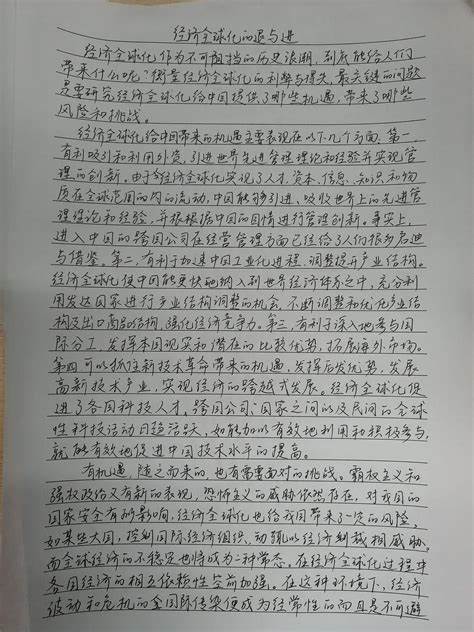 经济全球化的退与进
经济全球化，作为不可阻挡的历史浪潮，到底能给人们
带来什么呢？衡量经济全球化的利弊与得失，最关键的问题
是要研究经济全球化给中国提供了哪些机遇，带来了哪些
风险和挑战。
经济全球化给中国带来的机遇主要表现在以下几个方面：第一
有利吸引和利用外资，引进世界先进管理理论和经验并实现管
理的创新。由于经济全球化实现了人才、资本、信息、知识和物
质在全球范围内的流动，中国能够引进、吸收世界上的先进管
理理论和经验，并根据中国的国情进行管理创新。事实上，
进入中国的跨国公司在经营管理方面已经给了人们很多启迪
与借鉴。第二，有利于加速中国工业化进程，调整提升产业结构。
经济全球化使中国能更快地纳入到世界经济体系之中，充分利
用发达国家进行产业结构调整的机会，不断调整和优化产业结
构及出口商品结构，强化经济竞争力。第三，有利于深入地参与国
际分工，发挥本国现实和潜在的比较优势，拓展海外市场。
第四可以抓住新技术革命带来的机遇，发挥后发优势，发展
高新技术产业，实现经济的跨越式发展。经济全球化促
进了各国科技人才、跨国公司、国家之间以及民间的全球
性科技活动日趋活跃，如能加以有效地利用和积极参与，
就能有效地促进中国技术水平的提高。
有机遇，随之而来的，也有需要面对的挑战。霸权主义和
强权政治又有新的表现，恐怖主义的威胁依然存在，对我国的
国家安全有所影响，经济全球化也给我国带来了一定的风险。
如某些大国，控制国际经济组织，动辄以经济制裁相威胁。
而全球经济的不稳定也将成为一种常态。在经济全球化过程中
各国经济的相互依赖性空前加强。在这种环境下，经济
波动和危机的全国际传染便成为经常性的而且是不可避